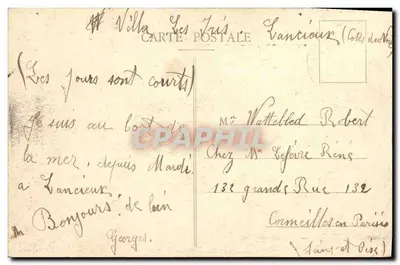 Villa Les Iris Lancieux (Côtes du Nord
CARTE POSTALE
(Les jours sont courts)
Je suis au bort de
la mer, depuis Mardi
a Lancieux
Bonjours de loin
Georges.
Mr Wattebled Robert
Chez Mr Lefèvre René
132 grande Rue 132
Cormeilles en Parisis
(Seine et Oise)
CPAPHIL